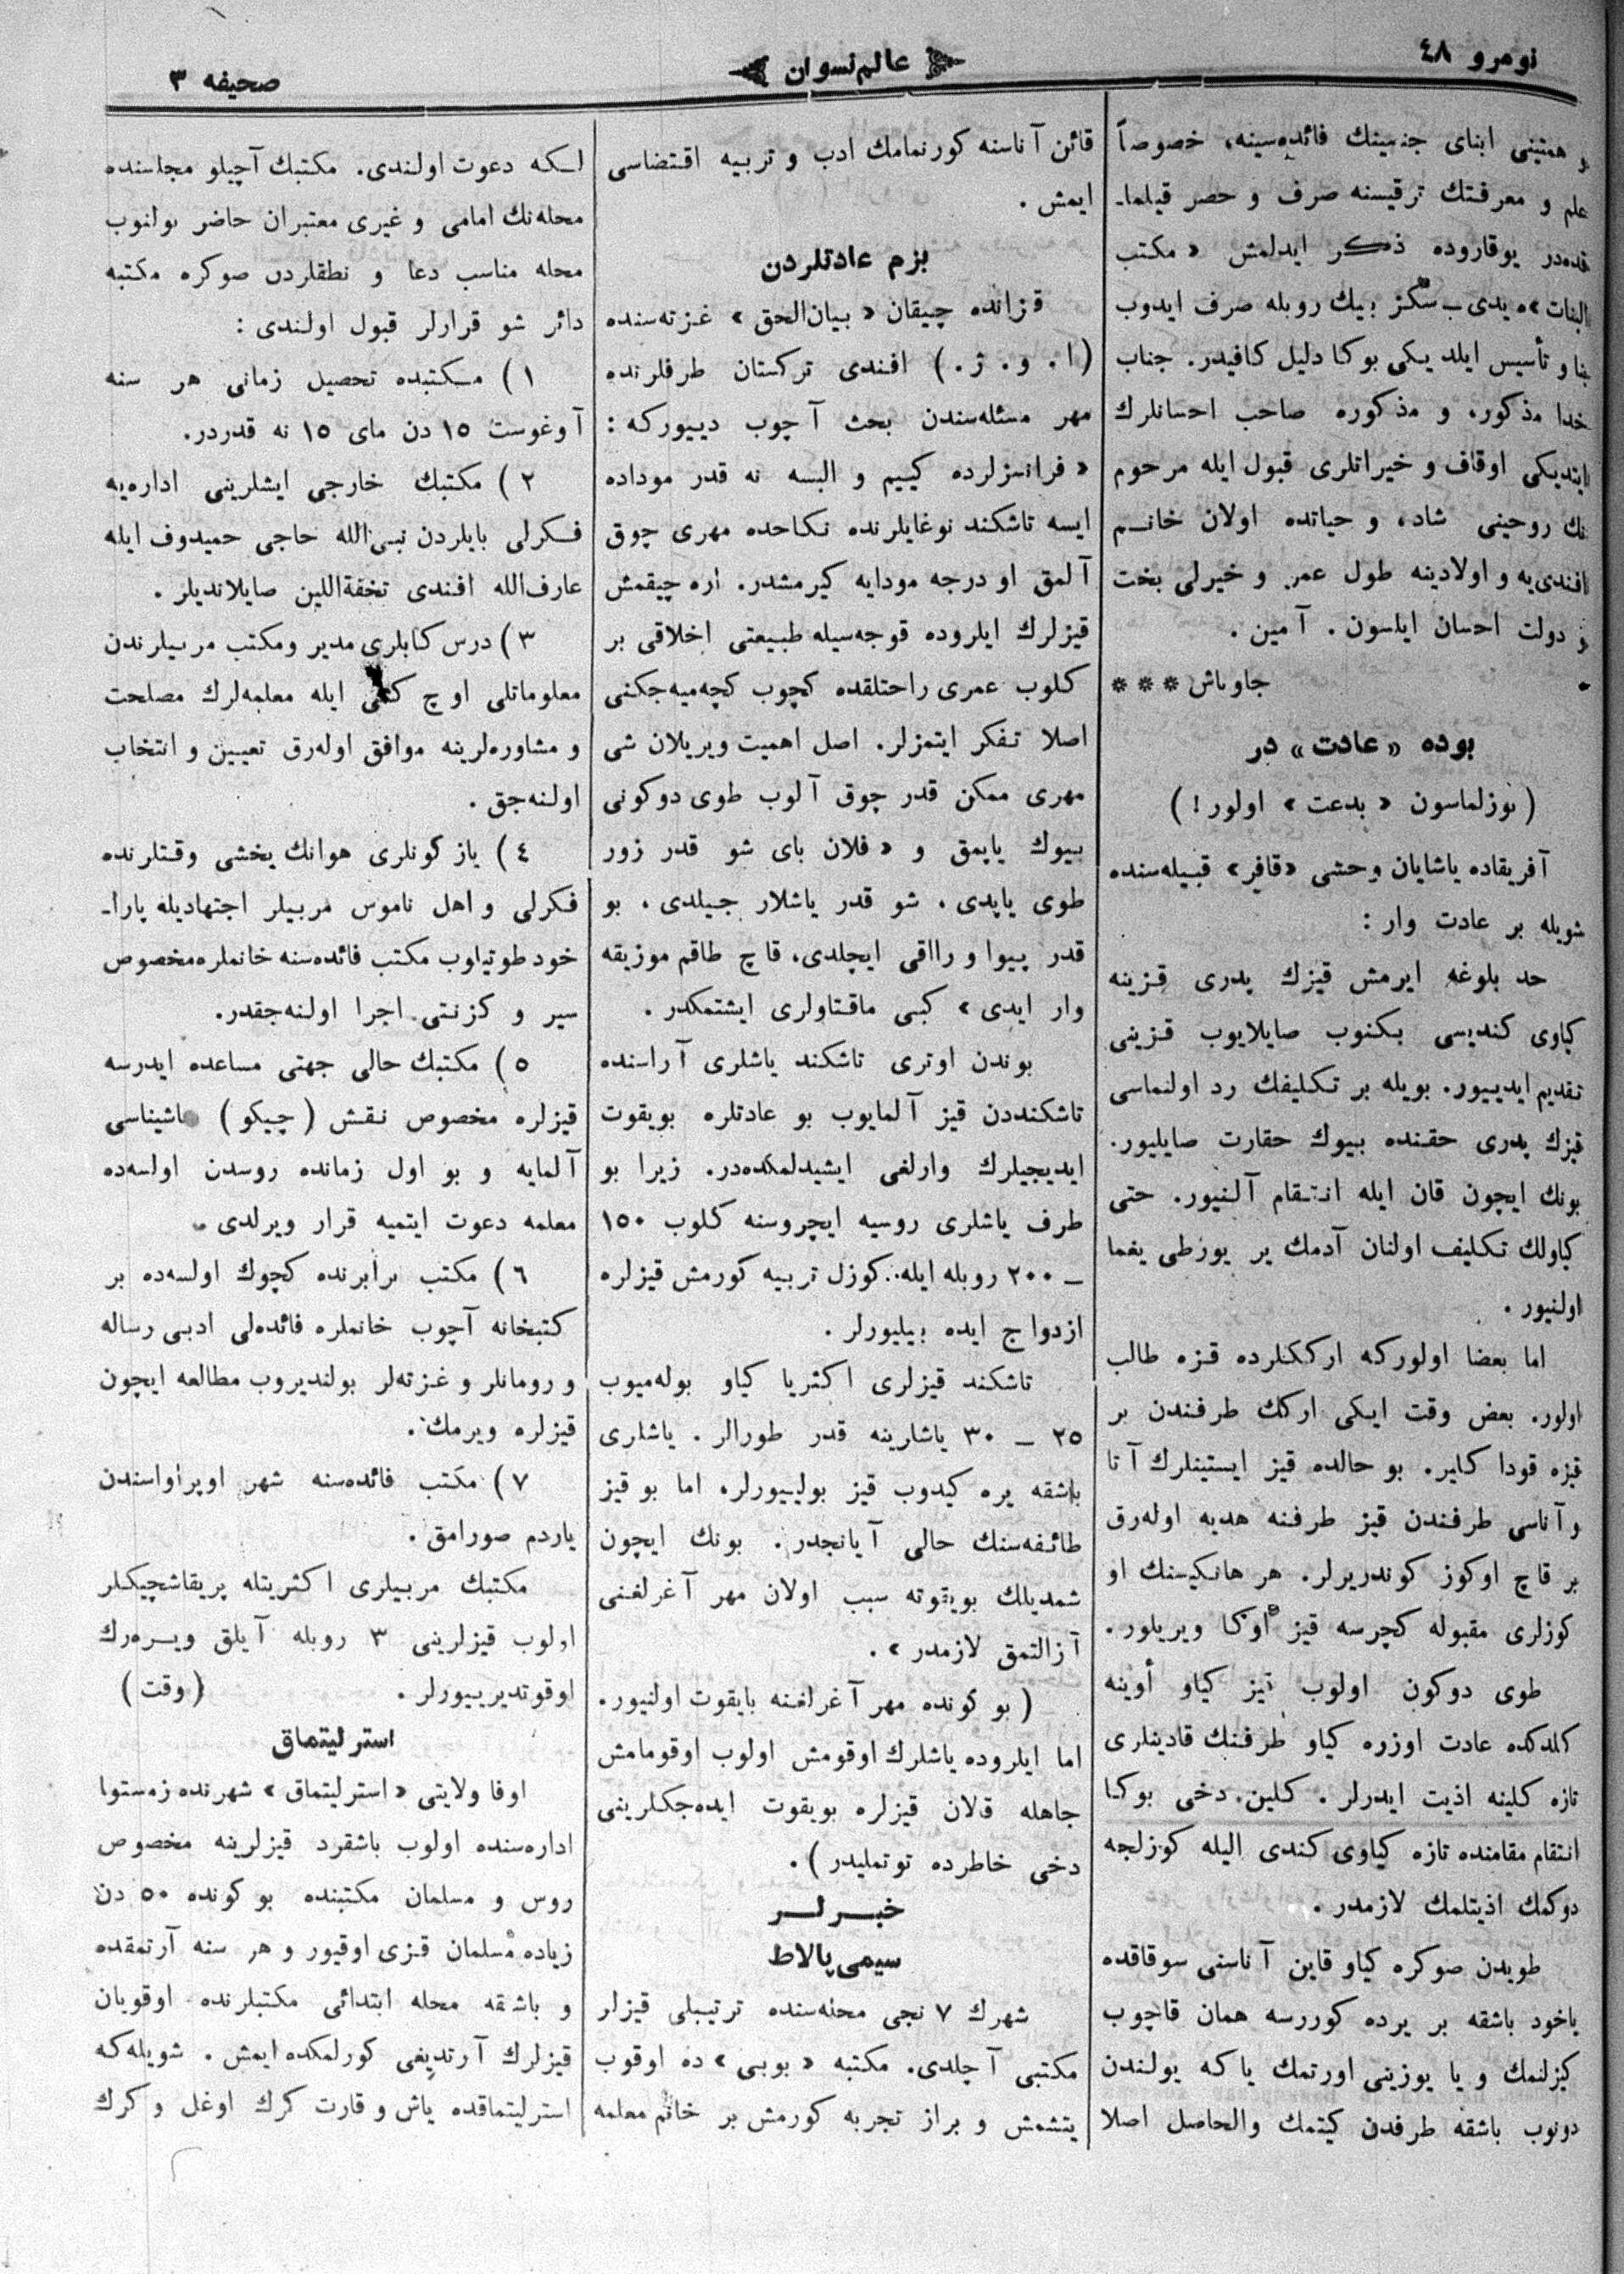 نومرو ٤٨
عالم نسوان
صحيفه ٣
و همتينى ابناى جنسينك فائده‌سينه، خصوصاً
علم و معرفتك ترقيسنه صرف و حصر قيلما-
قده‌در يوقاروده ذكر ايدلمش « مكتب
البنات »ه يدى ـ سكز بيك روبله صرف ايدوب
بنا و تأسيس ايلديكى بوكا دليل كافيدر. جناب
خدا مذكور، و مذكوره صاحب احسانلرك
ايتديكى اوقاف و خيراتلرى قبول ايله مرحوم
نك روحينى شاد، و حياتده اولان خانم
افندى‌يه و اولادينه طول عمر و خيرلى بخت
و دولت احسان ايلسون. آمين.
جاوباش * * *
بوده «عادت» در
( بوزلماسون « بدعت » اولور! )
آفريقاده ياشايان وحشى «قافر» قبيله‌سنده
شويله بر عادت وار :
حد بلوغه ايرمش قيزك پدرى قزينه
كياوى كنديسى بكنوب صايلايوب قزينى
تقديم ايدييور. بويله بر تكليفك رد اولنماسى
قيزك پدرى حقنده بيوك حقارت صايليور.
بونك ايچون قان ايله انتقام آلنيور. حتى
كياولك تكليف اولنان آدمك ير يورطى يغما
اولنيور.
اما بعضا اولوركه ارككلرده قزه طالب
اولور. بعض وقت ايكى اركك طرفندن بر
قيزه قودا كلير. بو حالده قيز ايستينلرك آتا
و آناسى طرفندن قيز طرفنه هديه اوله‌رق
بر قاچ اوكوز كوندريرلر. هر هانكيسنك او
كوزلرى مقبوله كچرسه قيز اوكا ويريلور.
طوى دوكون اولوب قيز كياو أوينه
كلدكده عادت اوزره كياو طرفنك قادينلرى
تازه كلينه اذيت ايدرلر. كلين دخى بوكا
انتقام مقامنده تازه كياوى كندى اليله كوزلجه
دوكمك اذيتلمك لازمدر.
طويدن صوكره كياو قاين آناسنى سوقاقده
ياخود باشقه بر يرده كوررسه همان قاچوب
كيزلنمك و يا يوزينى اورتمك ياكه يولندن
دونوب باشقه طرفدن كيتمك والحاصل اصلا
قائن آناسنه كورنمامك ادب و تربيه اقتضاسى
ايمش.
بزم عادتلردن
قزانده چيقان « بيان‌الحق » غزته‌سنده
(ا. و. ژ.) افندى تركستان طرفلرنده
مهر مسئله‌سندن بحث آچوب دييوركه :
« فرانسزلرده كييم و البسه نه قدر موداده
ايسه تاشكند نوغايلرنده نكاحده مهرى چوق
آلمق او درجه مودايه كيرمشدر. اره چيقمش
قيزلرك ايلروده قوجه‌سيله طبيعتى اخلاقى بر
كلوب عمرى راحتلقده كچوب كچه‌ميه‌جكنى
اصلا تفكر ايتمزلر. اصل اهميت ويريلان شى
مهرى ممكن قدر چوق آلوب طوى دوكونى
بيوك ياپمق و « فلان باى شو قدر زور
طوى ياپدى، شو قدر ياشلار جيلدى، بو
قدر پيوا و رااقى ايچلدى، قاچ طاقم موزيقه
وار ايدى » كبى ماقتاولرى ايشتمكدر.
بوندن اوترى تاشكند ياشلرى آراسنده
تاشكنددن قيز آلمايوب بو عادتلره بويقوت
ايديجيلرك وارلغى ايشيدلمكده‌در. زيرا بو
طرف ياشلرى روسيه ايچروسنه كلوب ١٥٠
ـ ٢٠٠ روبله ايله كوزل تربيه كورمش قيزلره
ازدواج ايده بيليورلر.
تاشكند قيزلرى اكثريا كياو بوله‌ميوب
٢٥ ـ ٣٠ ياشارينه قدر طورالر. ياشلرى
باشقه يره كيدوب قيز بولييورلر، اما بو قيز
طائفه‌سنك حالى آيانجدر. بونك ايچون
شمديلك بويقوته سبب اولان مهر آغرلغنى
آزالتمق لازمدر ».
( بو كونده مهر آغرلغنه بايقوت اولنيور.
اما ايلروده ياشلرك اوقومش اولوب اوقومامش
جاهله قالان قيزلره بويقوت ايده‌جكلرينى
دخى خاطرده توتمليدر ).
خبرلر
سيمى پالاط
شهرك ٧ نجى محله‌سنده ترتيبلى قيزلر
مكتبى آچلدى. مكتبه « بوبى » ده اوقوب
يتشمش و براز تجربه كورمش بر خانم معلمه
لكه دعوت اولندى. مكتبك آچيلو مجلسنده
محله‌نك امامى و غيرى معتبران حاضر بولنوب
محله مناسب دعا و نطقلردن صوكره مكتبه
دائر شو قرارلر قبول اولندى :
١) مكتبده تحصيل زمانى هر سنه
آوغوست ١٥ دن ماى ١٥ نه قدردر.
٢) مكتبك خارجى ايشلرينى اداره‌يه
فكرلى بايلردن نبى‌الله حاجى حميدوف ايله
عارف‌الله افندى تخفةاللين صايلانديلر.
٣) درس كتابلرى مدير و مكتب مربيلرندن
معلوماتلى اوچ كشى ايله معلمه‌لرك مصلحت
و مشاوره‌لرينه موافق اوله‌رق تعيين و انتخاب
اولنه‌جق.
٤) ياز كونلرى هوانك يخشى وقتلرنده
فكرلى و اهل ناموس مربيلر اجتهاديله پارا-
خود طوتيلوب مكتب فائده‌سنه خانملره مخصوص
سير و كزنتى اجرا اولنه‌جقدر.
٥) مكتبك حالى جهتى مساعده ايدرسه
قيزلره مخصوص نقش ( چيكو ) ماشيناسى
آلمايه و بو اول زمانده روسدن اولسه‌ده
معلمه دعوت ايتميه قرار ويرلدى.
٦) مكتب برابرنده كچوك اولسه‌ده بر
كتبخانه آچوب خانملره فائده‌لى ادبى رساله
و رومانلر و غزته‌لر بولنديروب مطالعه ايچون
قيزلره ويرمك.
٧) مكتب فائده‌سنه شهر اوپراواسندن
ياردم صورامق.
مكتبك مربيلرى اكثريتله پريقاشچيكلر
اولوب قيزلرينى ٣ روبله آيلق ويره‌رك
اوقوتديرييورلر. (وقت)
استرليتماق
اوفا ولايتى « استرليتماق » شهرنده زمستوا
اداره‌سنده اولوب باشقرد قيزلرينه مخصوص
روس و مسلمان مكتبنده بو كونده ٥٠ دن
زياده مسلمان قزى اوقيور و هر سنه آرتمقده
و باشقه محله ابتدائى مكتبلرنده اوقويان
قيزلرك آرتديغى كورلمكده ايمش. شويله‌كه
استرليتماقده ياش و قارت كرك اوغل و كرك